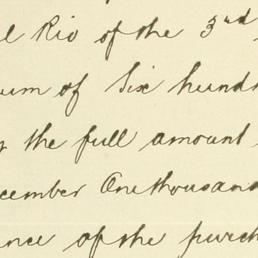 l Rio of the 3rd
um of Six hundr
the full amount
cember One thousand
ance of the purch